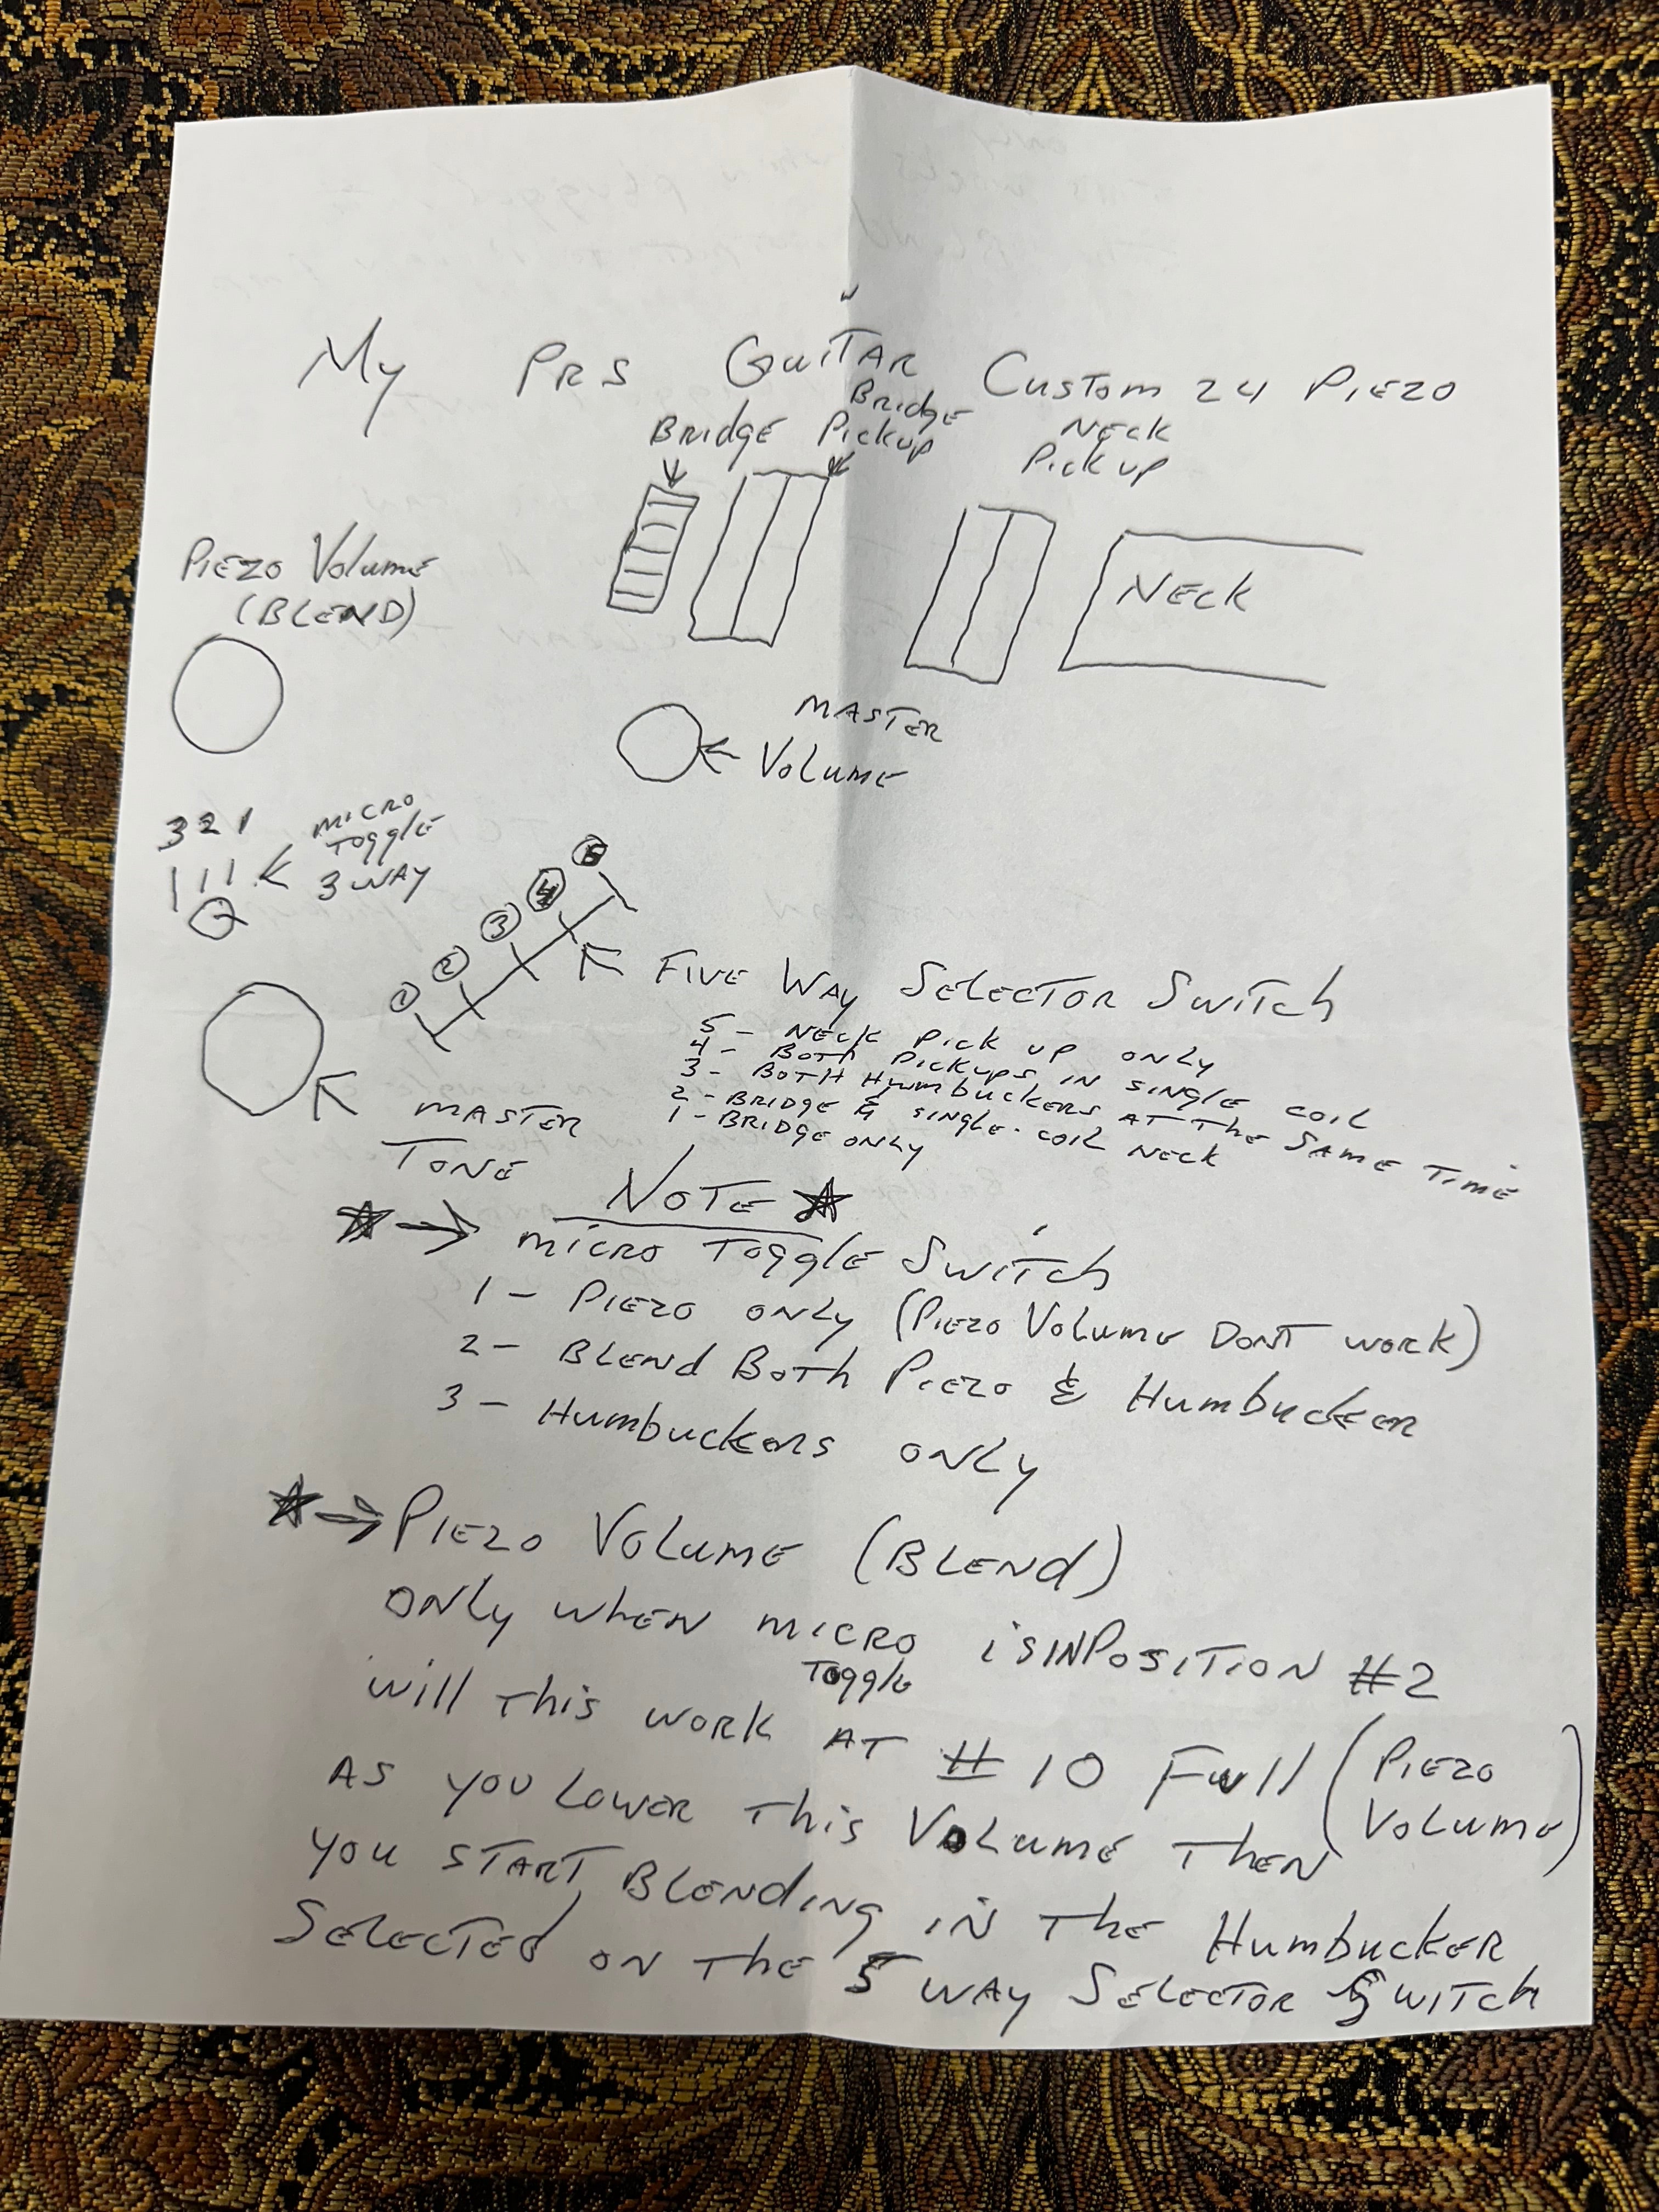 My PRS GuiTAR Custom 24 PiEzo
BRidgE
BRidgE
Pickup
NEck
Pick up
PiEzo Volume
(BLEND)
NEck
MASTER
VoLume
3 2 1
micro
ToggLE
3 WAY
5
4
3
2
1
FIVE WAy SELECTOR SwiTch
5 - NEck Pick up only
4 - BoTh Pickups in single coil
3 - BoTH Humbuckers AT The SAmE TimE
2 - BRidgE & single coil NEck
1 - BRidgE only
mASTER
TonE
NoTE
micro ToggLE SwiTch
1 - PiEzo only (PiEzo VoLumE DonT work)
2 - BLEnd BoTh PiEzo & HumbuckEr
3 - HumbuckERs only
PiEzo VoLumE (BLEnd)
only whEn micro isinPosiTion #2
ToggLE
will This work AT #10 Full (PiEzo
VoLumE)
As you LowER This VoLumE ThEn
you sTART BLEnding in The HumbuckER
SELEcTEd on The 5 WAY SELECTOR SwiTch